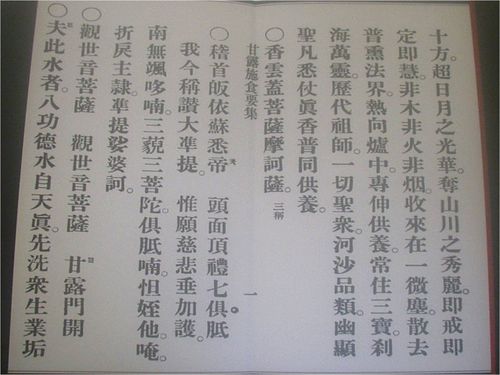 十方。超日月之光華。奪山川之秀麗。即戒即
定即慧。非木非火非烟。收來在一微塵。散去
普熏法界。熱向爐中。專伸供養。常住三寶。刹
海萬靈。歷代祖師。一切聖衆。河沙品類。幽顯
聖凡。悉仗眞香。普同供養。
○香雲蓋菩薩摩訶薩。三稱
甘露施食要集 一
○稽首皈依蘇悉帝 頭面頂禮七俱胝
我今稱讚大準提 惟願慈悲垂加護。
南無颯哆喃。三藐三菩陀。俱胝喃。怛姪他。唵。
折戾主隸。準提娑婆訶。
○觀世音菩薩 觀世音菩薩 甘露門開
○夫此水者。八功德水自天眞。先洗衆生業垢